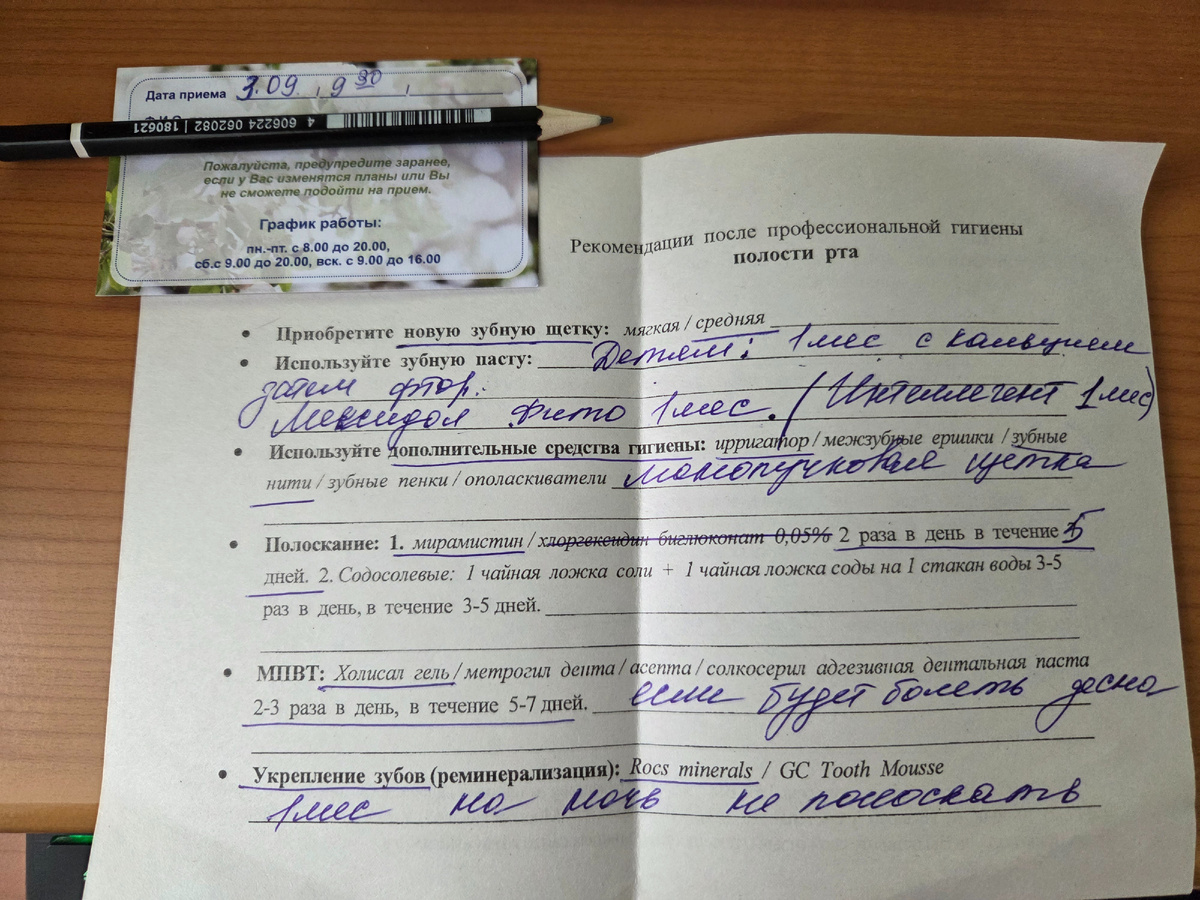 Дата приема 3.09. , 9 30 ,
4 606224 062082 | 180621
Пожалуйста, предупредите заранее,
если у Вас изменятся планы или Вы
не сможете подойти на прием.
График работы:
пн.-пт. с 8.00 до 20.00,
сб.с 9.00 до 20.00, вск. с 9.00 до 16.00
Рекомендации после профессиональной гигиены
полости рта
• Приобретите новую зубную щетку: мягкая / средняя
• Используйте зубную пасту: Детям: 1 мес с кальцием
затем фтор.
Мексидол Фито 1 мес. (Интеллегент 1 мес)
• Используйте дополнительные средства гигиены: ирригатор / межзубные ершики / зубные
нити / зубные пенки / ополаскиватели монопучковая щетка
• Полоскание: 1. мирамистин / хлоргексидин биглюконат 0,05% 2 раза в день в течение 5
дней. 2. Содосолевые: 1 чайная ложка соли + 1 чайная ложка соды на 1 стакан воды 3-5
раз в день, в течение 3-5 дней.
• МПВТ: Холисал гель / метрогил дента / асепта / солкосерил адгезивная дентальная паста
2-3 раза в день, в течение 5-7 дней. если будет болеть десна
• Укрепление зубов (реминерализация): Rocs minerals / GC Tooth Mousse
1 мес на ночь не полоскать